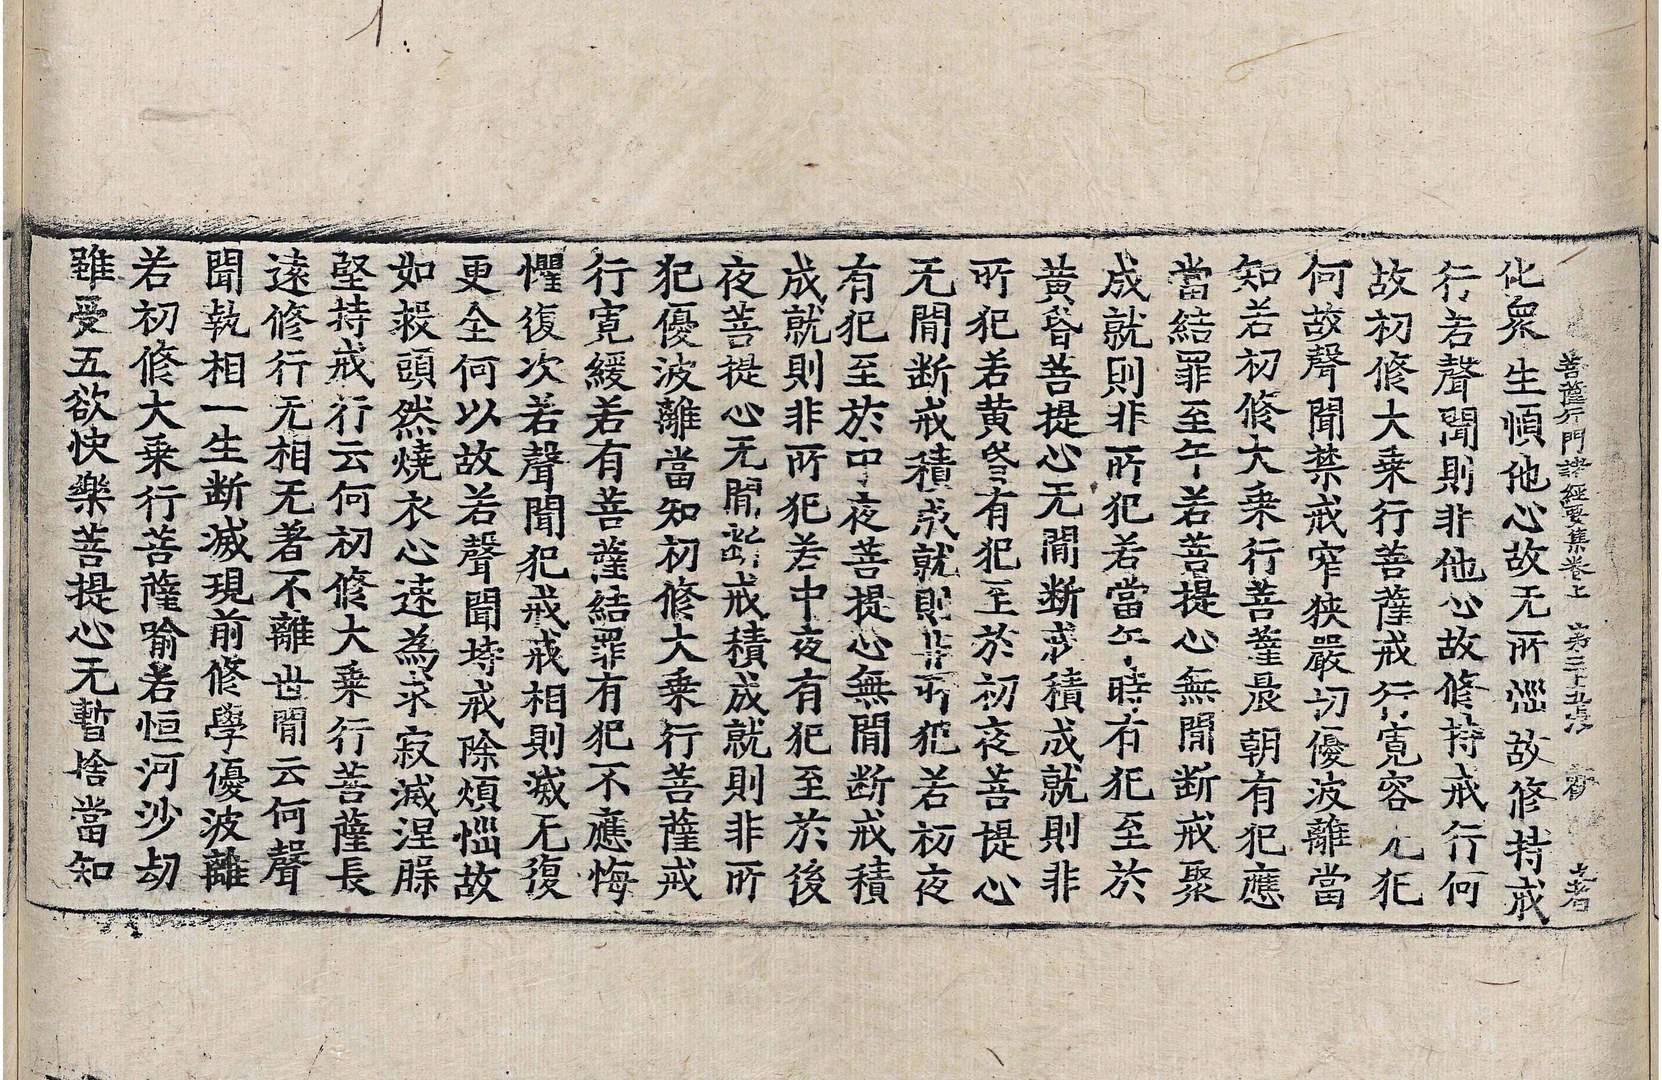 菩薩行門諸經要集卷上 第三十九張
化衆生順他心故无所㳷故修持戒
行若聲聞則非他心故修持戒行何
故初修大乗行菩薩戒行寛容 犯
何故聲聞禁戒窄狹嚴切優波離當
知若初修大乗行菩薩晨朝有犯應
當結罪至午若菩提心無間断戒聚
成就則非所犯若當午時有犯至於
黄昏菩提心无間断戒積成就則非
所犯若黄昏有犯至於初夜菩提心
无間断戒積成就則非所犯若初夜
有犯至於中夜菩提心無間断戒積
成就則非所犯若中夜有犯至於後
夜菩提心无間断戒積成就則非所
犯優波離當知初修大乗行菩薩戒
行寛緩若有菩薩結罪有犯不應悔
懼復次若聲聞犯戒戒相則滅无復
更全何以故若聲聞持戒除煩惱故
如救頭然燒衣心速為求寂滅涅槃
堅持戒行云何初修大乗行菩薩長
遠修行无相无著不離世間云何聲
聞執相一生断滅現前修學優波離
若初修大乗行菩薩喻若恒河沙劫
雖受五欲快樂菩提心无暫捨當知